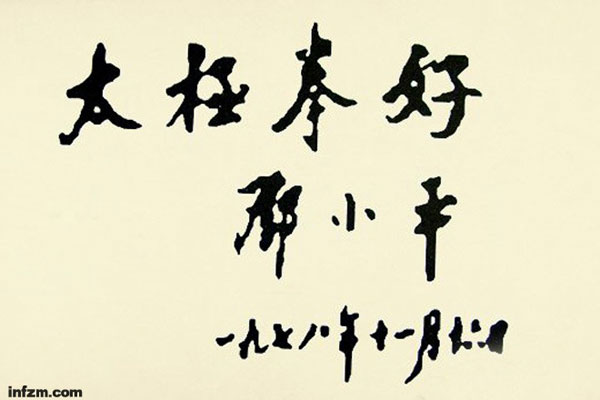 太极拳好
邓小平
一九七八年十一月十六日
infzm.com